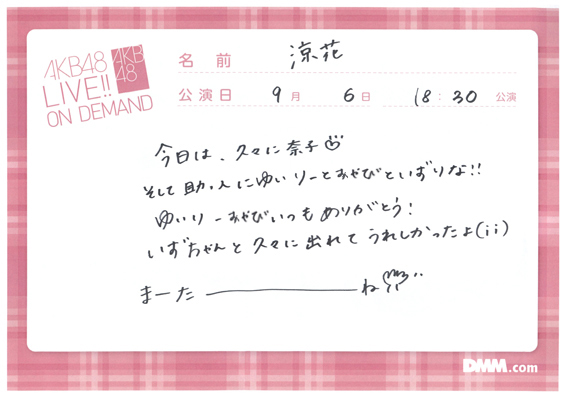 AKB48
LIVE!!
ON DEMAND
AKB
48
名前 涼花
公演日 9月 6日 18:30 公演
今日は、久々に奈子
そして助っ人にゆいりーとおやびといずりな!!
ゆいりーおやびいつもありがとう!
いずちゃんと久々に出れてうれしかったよ(ii)
まーた ― ね
DMM.com